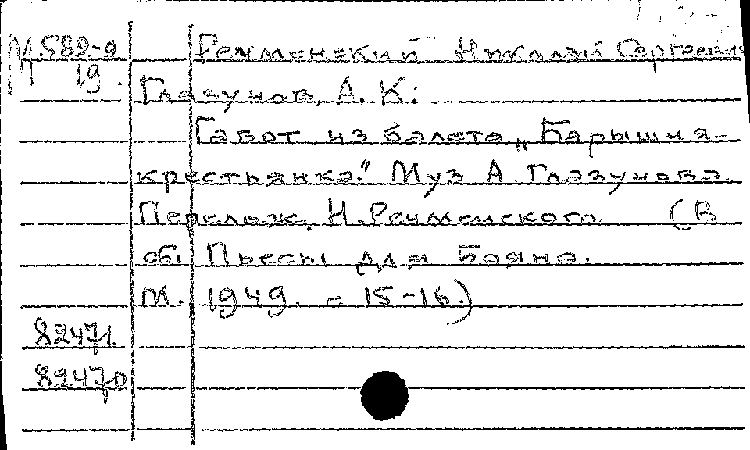 М.589-9 Речменский Николай Сергеевич
М 19.
Глазунов, А. К.
Гавот из балета „Барышня-
крестьянка." Муз А Глазунова.
Перелож. Н. Речменского (В
сб. Пьесы для баяна.
М. 1949. с 15-16.)
82471.
82470